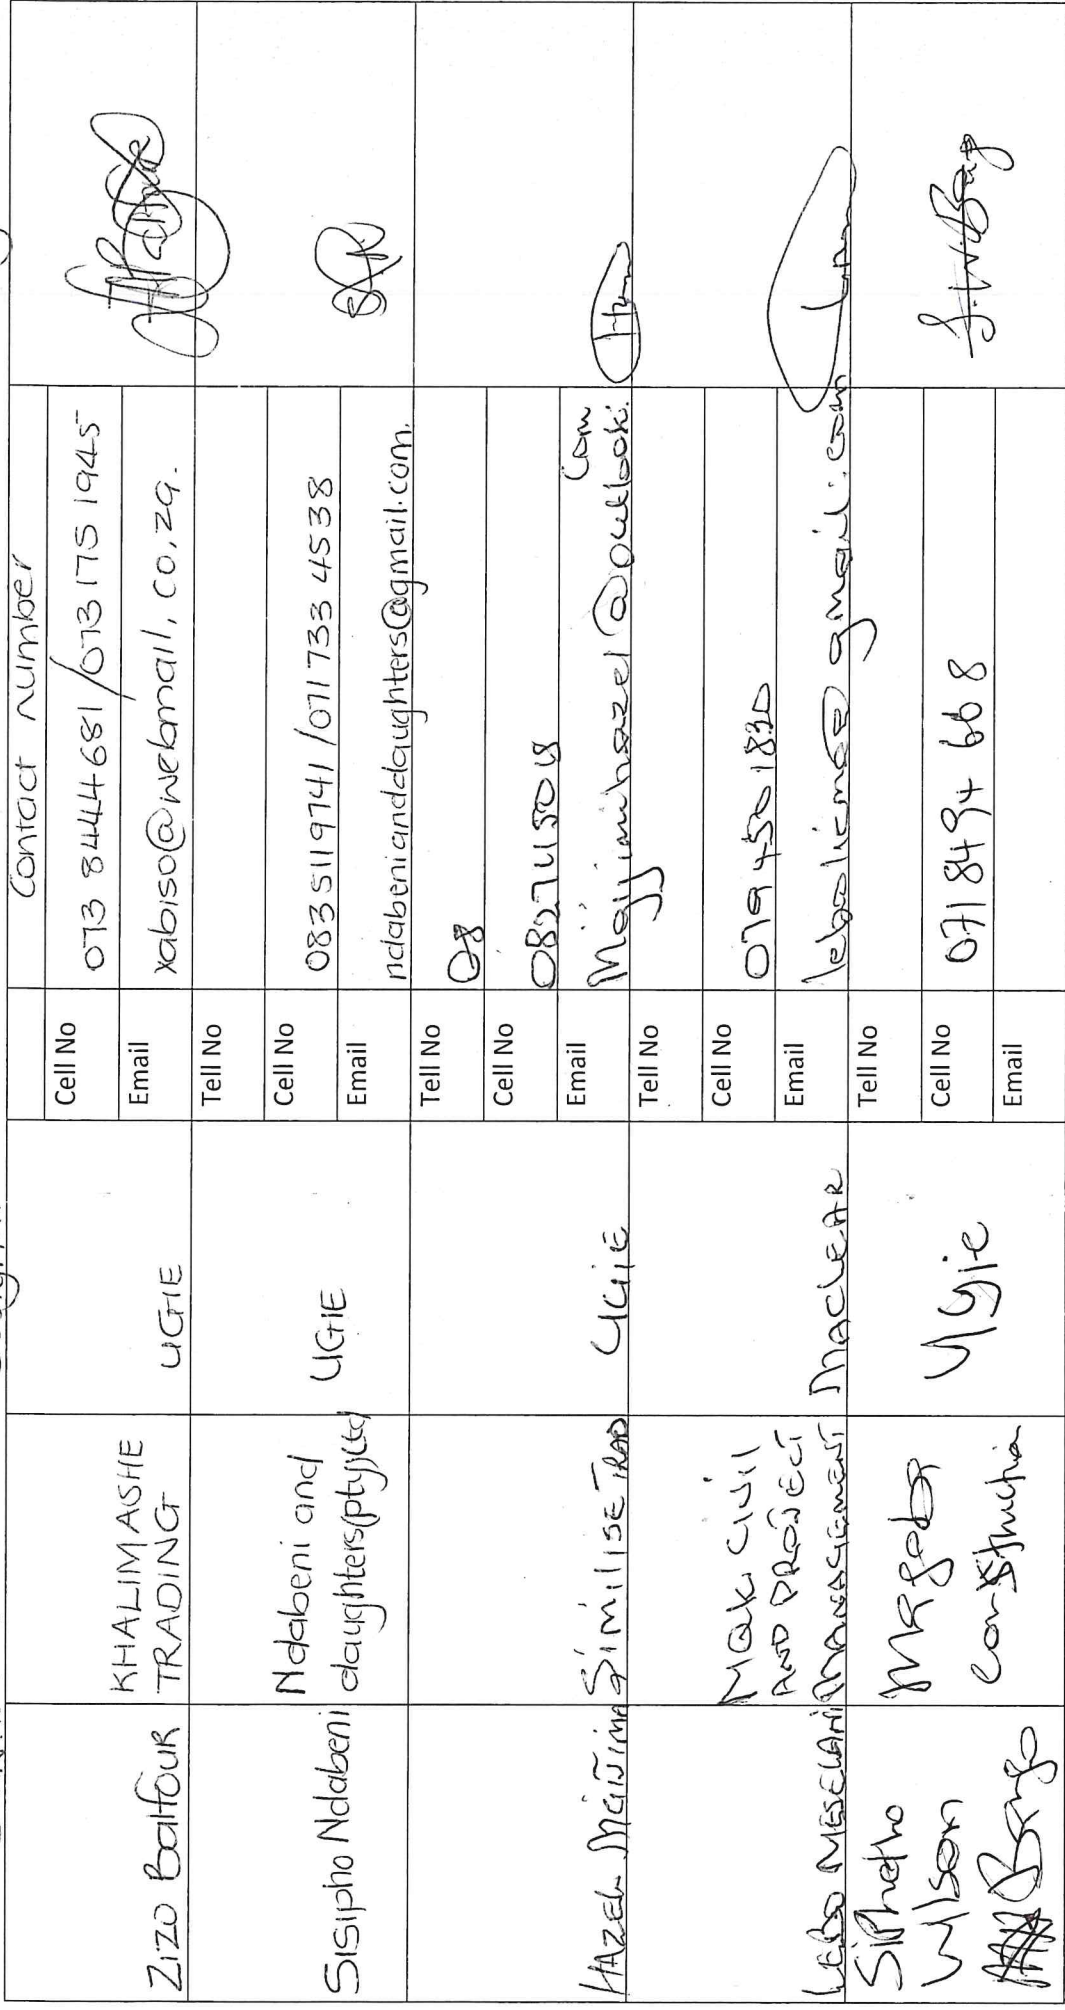 Contact number
Zizo Balfour
KHALIMASHE
TRADING
UGIE
Cell No
073 8444681/073 175 1945
Email
xabiso@webmail.co.za.
Sisipho Ndabeni
Ndabeni and
daughters(pty)Ltd
UGIE
Tell No
Cell No
083 5119741/071 733 4538
Email
ndabenianddaughters@gmail.com.
HAZEL
SimiliSE TRAD
UGIE
Tell No
08
Cell No
Email
Majijimhazel@outlook.
com
LEBO MESELANI
Maki Civil
AND PROJECT
MANAGEMENT
MACLEAR
Tell No
Cell No
079 450 1830
Email
gmail.com
Siphetho
Wilson
Magoba
Construction
Ugie
Tell No
Cell No
071 8494 668
Email